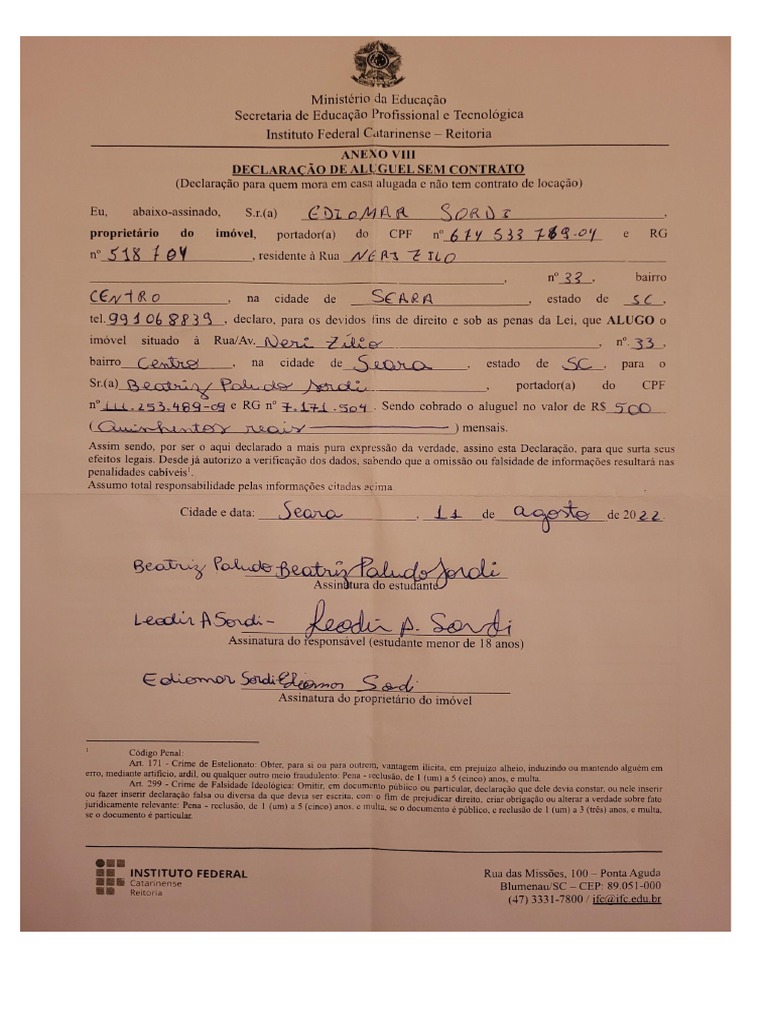 Ministério da Educação
Secretaria de Educação Profissional e Tecnológica
Instituto Federal Catarinense – Reitoria
ANEXO VIII
DECLARAÇÃO DE ALUGUEL SEM CONTRATO
(Declaração para quem mora em casa alugada e não tem contrato de locação)
Eu, abaixo-assinado, S.r.(a) EDIOMAR SORDI,
proprietário do imóvel, portador(a) do CPF nº 674 533 789-04 e RG
nº 518 704, residente à Rua NERI ZILO
, nº 33, bairro
CENTRO, na cidade de SEARA, estado de SC,
tel. 991068839, declaro, para os devidos fins de direito e sob as penas da Lei, que ALUGO o
imóvel situado à Rua/Av. Neri Zílio, nº. 33,
bairro Centro, na cidade de Seara, estado de SC, para o
Sr.(a) Beatriz Paludo Sordi, portador(a) do CPF
nº 111.253.489-09 e RG nº 7.171.504. Sendo cobrado o aluguel no valor de R$ 500
(Quinhentos reais) mensais.
Assim sendo, por ser o aqui declarado a mais pura expressão da verdade, assino esta Declaração, para que surta seus
efeitos legais. Desde já autorizo a verificação dos dados, sabendo que a omissão ou falsidade de informações resultará nas
penalidades cabíveis¹.
Assumo total responsabilidade pelas informações citadas acima.
Cidade e data: Seara, 11 de agosto de 2022.
Beatriz Paludo Beatriz Paludo Sordi
Assinatura do estudante
Leodir A Sordi - Leodir A. Sordi
Assinatura do responsável (estudante menor de 18 anos)
Ediomar Sordi Ediomar Sordi
Assinatura do proprietário do imóvel
1 Código Penal:
Art. 171 - Crime de Estelionato: Obter, para si ou para outrem, vantagem ilícita, em prejuízo alheio, induzindo ou mantendo alguém em
erro, mediante artifício, ardil, ou qualquer outro meio fraudulento: Pena - reclusão, de 1 (um) a 5 (cinco) anos, e multa.
Art. 299 - Crime de Falsidade Ideológica: Omitir, em documento público ou particular, declaração que dele devia constar, ou nele inserir
ou fazer inserir declaração falsa ou diversa da que devia ser escrita, com o fim de prejudicar direito, criar obrigação ou alterar a verdade sobre fato
juridicamente relevante: Pena - reclusão, de 1 (um) a 5 (cinco) anos, e multa, se o documento é público, e reclusão de 1 (um) a 3 (três) anos, e multa,
se o documento é particular.
INSTITUTO FEDERAL
Catarinense
Reitoria
Rua das Missões, 100 – Ponta Aguda
Blumenau/SC – CEP: 89.051-000
(47) 3331-7800 / ifc@ifc.edu.br